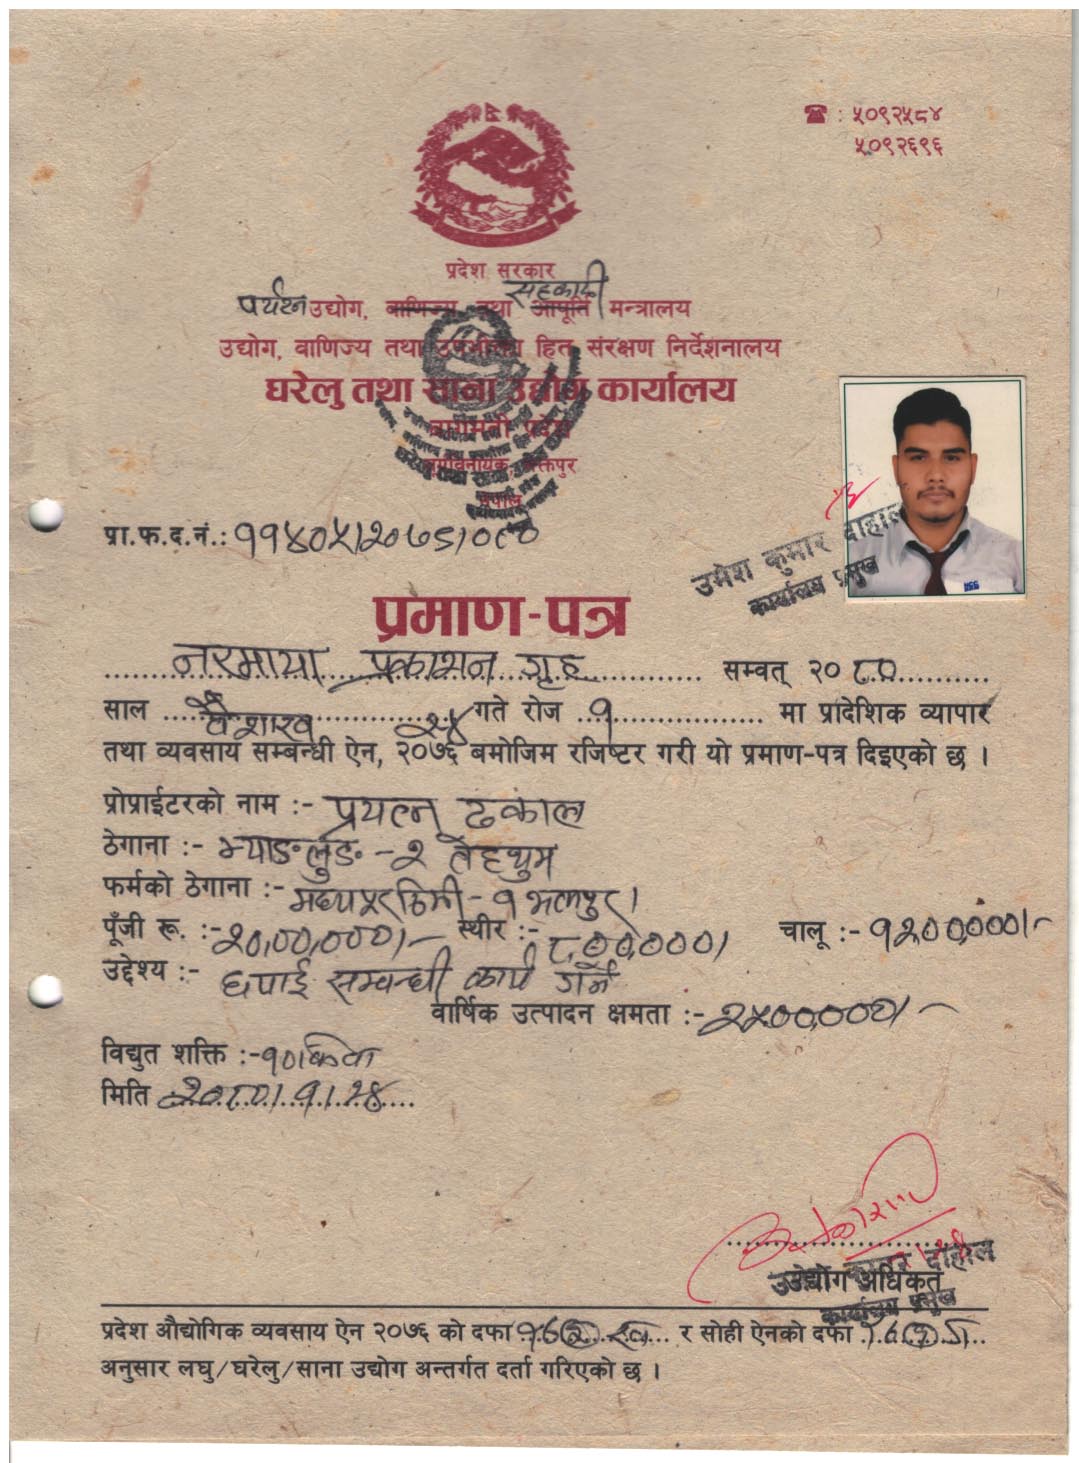 ☎ : ५०९२५८४
५०९२६९६
प्रदेश सरकार
सहकारी
पर्यटन उद्योग, वाणिज्य तथा आपूर्ति मन्त्रालय
उद्योग, वाणिज्य तथा उपभोक्ता हित संरक्षण निर्देशनालय
घरेलु तथा साना उद्योग कार्यालय
बागमती प्रदेश
सूर्यविनायक, भक्तपुर
नेपाल
प्रा.फ.द.नं.:
उमेश कुमार दाहाल
कार्यालय प्रमुख
प्रमाण-पत्र
नरमाया प्रकाशन गृह सम्वत् २०८०
साल वैशाख २४ गते रोज १ मा प्रादेशिक व्यापार
तथा व्यवसाय सम्बन्धी ऐन, २०७६ बमोजिम रजिष्टर गरी यो प्रमाण-पत्र दिइएको छ ।
प्रोप्राईटरको नाम :- प्रयत्न ढकाल
ठेगाना :- म्याङलुङ - २ तेह्रथुम
फर्मको ठेगाना :- मध्यपुर ठिमी - १ भक्तपुर।
पूँजी रू. :- २०,००,०००।- स्थीर :- ८,००,०००। चालू :- १२,००,०००।-
उद्देश्य :- छपाई सम्बन्धी कार्य गर्ने
वार्षिक उत्पादन क्षमता :- २५,००,०००।-
विद्युत शक्ति :- १० कि.वा
मिति २०८०।१।२४
उद्योग अधिकृत
दाहाल
कार्यालय प्रमुख
प्रदेश औद्योगिक व्यवसाय ऐन २०७६ को दफा र सोही ऐनको दफा
अनुसार लघु/घरेलु/साना उद्योग अन्तर्गत दर्ता गरिएको छ ।